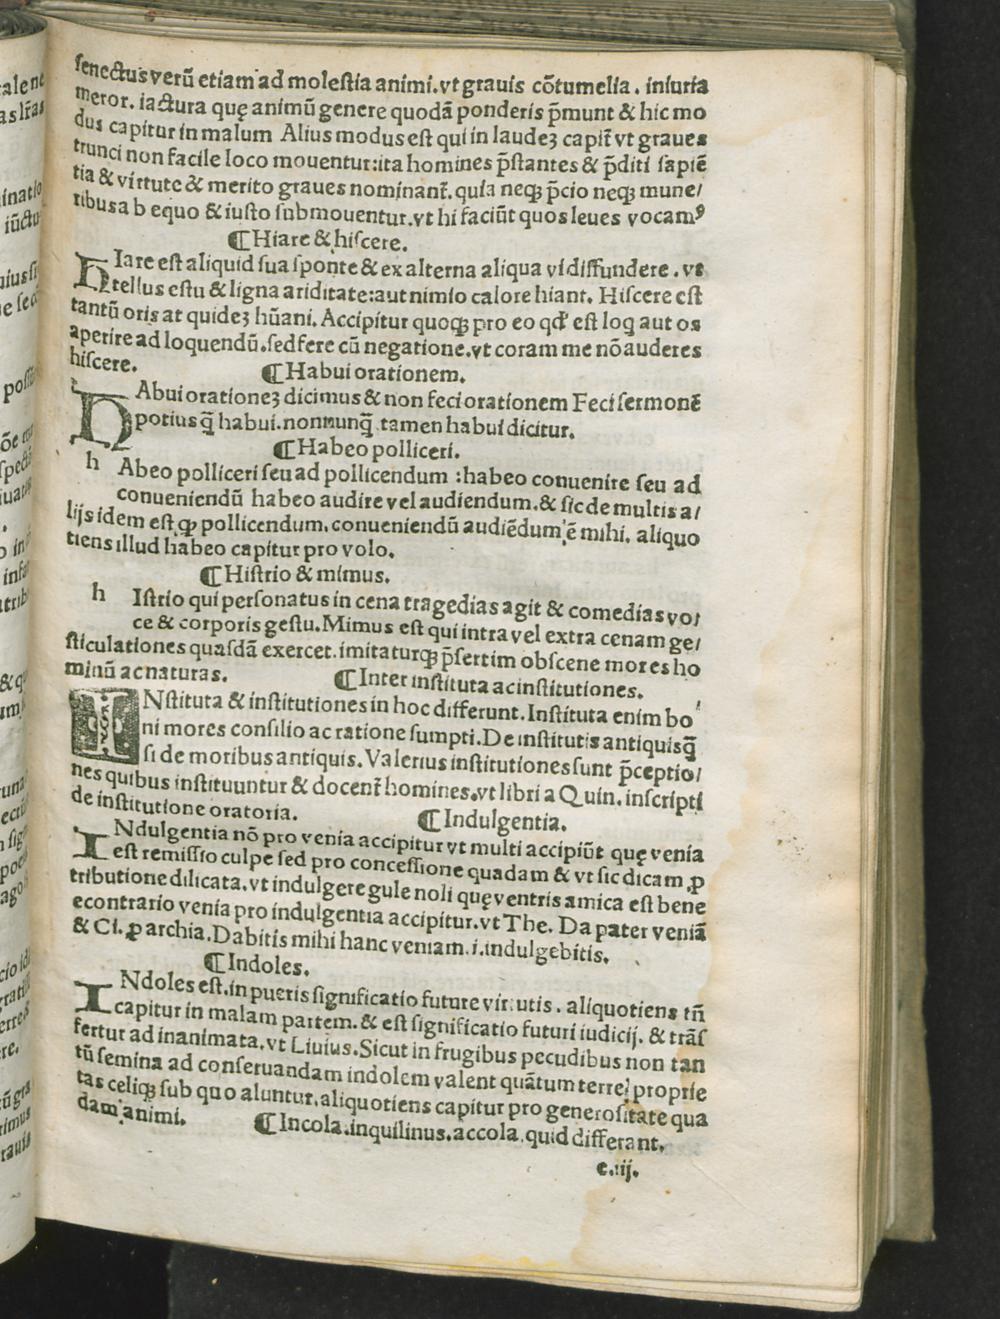 senectus verū etiam ad molestia animi. vt grauis cōtumelia. iniuria
meror. iactura quę animū genere quodā ponderis p̄munt & hic mo
dus capitur in malum Alius modus est qui in laudeʒ capit̄ vt graues
trunci non facile loco mouentur: ita homines p̄stantes & p̄diti sapiē
tia & virtute & merito graues nominant̄. quia neqʒ p̄cio neqʒ mune/
ribus ab equo & iusto submouentur. vt hi faciūt quos leues vocamꝰ
¶ Hiare & hiscere.
HIare est aliquid sua sponte & ex alterna aliqua vi diffundere. vt
tellus estu & ligna ariditate: aut nimio calore hiant. Hiscere est
tantū oris at quideʒ hūani. Accipitur quoqʒ pro eo qđ est loq aut os
aperire ad loquendū. sed fere cū negatione. vt coram me nō auderes
hiscere. ¶ Habui orationem.
HAbui orationeʒ dicimus & non feci orationem Feci sermonē
potius q̄ habui. nonnunq̄ tamen habui dicitur.
¶ Habeo polliceri.
h Abeo polliceri seu ad pollicendum : habeo conuenire seu ad
conueniendū habeo audire vel audiendum. & sic de multis a/
lijs idem est qꝫ pollicendum. conueniendū audiēdum ē mihi. aliquo
tiens illud habeo capitur pro volo.
¶ Histrio & mimus.
h Istrio qui personatus in cena tragedias agit & comedias vo/
ce & corporis gestu. Mimus est qui intra vel extra cenam ge/
sticulationes quasdā exercet. imitaturqʒ p̄sertim obscene mores ho
minū ac naturas. ¶ Inter instituta ac institutiones.
INstituta & institutiones in hoc differunt. Instituta enim bo/
ni mores consilio ac ratione sumpti. De institutis antiquis q̄
si de moribus antiquis. Valerius institutiones sunt p̄ceptio/
nes quibus instituuntur & docent̄ homines. vt libri a Quin. inscripti
de institutione oratoria. ¶ Indulgentia.
INdulgentia nō pro venia accipitur vt multi accipiūt quę venia
est remissio culpe sed pro concessione quadam & vt sic dicam ꝓ
tributione dilicata. vt indulgere gule noli quę ventris amica est bene
econtrario venia pro indulgentia accipitur. vt The. Da pater veniā
& Ci. ꝓ archia. Dabitis mihi hanc veniam. i. indulgebitis.
¶ Indoles.
INdoles est. in pueris significatio future virtutis. aliquotiens tn̄
capitur in malam partem. & est significatio futuri iudicij. & trās
fertur ad inanimata. vt Liuius. Sicut in frugibus pecudibus non tan
tū semina ad conseruandam indolem valent quātum terre proprie
tas celiqʒ sub quo aluntur. aliquotiens capitur pro generositate qua
dam animi. ¶ Incola. inquilinus. accola. quid differant.
c.iij.